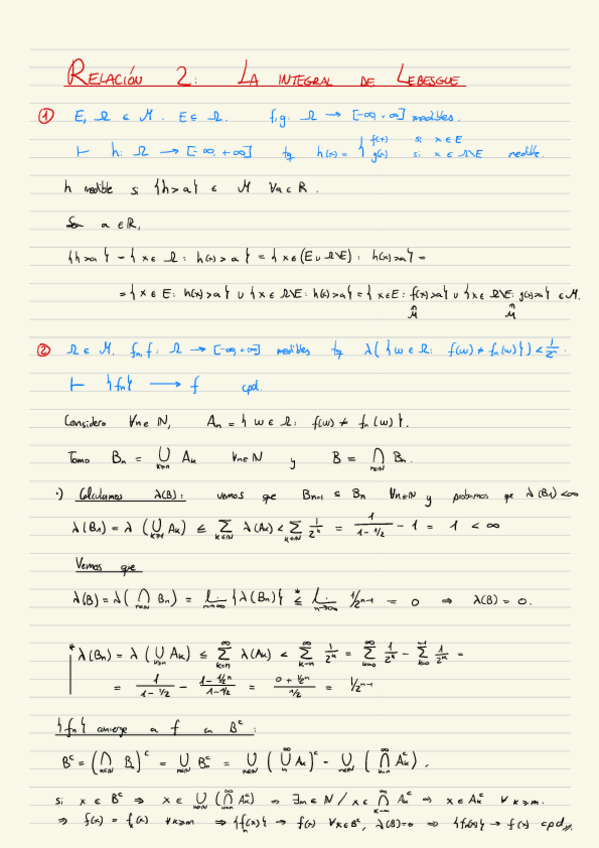 RELACIÓN 2: LA INTEGRAL DE LEBESGUE
① E, Ω ∈ M. E ⊆ Ω. f,g: Ω → [-∞,+∞] medibles.
⊢ h: Ω → [-∞,+∞] tq h(x) = { f(x) si x ∈ E
g(x) si x ∈ Ω\E medible.
h medible si {h>a} ∈ M ∀a∈R.
Sea a ∈ R,
{h>a} = {x ∈ Ω: h(x)>a} = {x ∈ (E∪Ω\E): h(x)>a} =
= {x ∈ E: h(x)>a} ∪ {x ∈ Ω\E: h(x)>a} = {x∈E: f(x)>a} ∪ {x∈Ω\E: g(x)>a} ∈ M.
M M
② Ω ∈ M. fₙ,f: Ω → [-∞,+∞] medibles tq λ({w ∈ Ω: f(w) ≠ fₙ(w)}) < 1/2ⁿ.
⊢ {fₙ} → f cpd.
Considero ∀n∈N, Aₙ = {w ∈ Ω: f(w) ≠ fₙ(w)}.
Tomo Bₙ = ∪_{k≥n} Aₖ ∀n∈N y B = ∩_{n∈N} Bₙ.
·) Calculamos λ(B): vemos que Bₙ₊₁ ⊆ Bₙ ∀n∈N y probamos que λ(B₁)<∞
λ(B₁) = λ(∪_{k≥1} Aₖ) ≤ Σ_{k∈N} λ(Aₖ) < Σ_{k∈N} 1/2ᵏ = 1/(1-1/2) - 1 = 1 < ∞
Vemos que
λ(B) = λ(∩_{n∈N} Bₙ) = lim_{n→∞} {λ(Bₙ)} ≤* lim_{n→∞} 1/2ⁿ⁻¹ = 0 ⇒ λ(B) = 0.
* λ(Bₙ) = λ(∪_{k≥n} Aₖ) ≤ Σ_{k=n}^∞ λ(Aₖ) < Σ_{k=n}^∞ 1/2ᵏ = Σ_{k=0}^∞ 1/2ᵏ - Σ_{k=0}^{n-1} 1/2ᵏ =
= 1/(1-1/2) - (1-1/2ⁿ)/(1-1/2) = (0+1/2ⁿ)/(1/2) = 1/2ⁿ⁻¹
{fₙ} converge a f en Bᶜ:
Bᶜ = (∩_{n∈N} Bₙ)ᶜ = ∪_{n∈N} Bₙᶜ = ∪_{n∈N} (∪_n^∞ Aₖ)ᶜ = ∪_{n∈N} (∩_{k=n}^∞ Aₖᶜ).
si x ∈ Bᶜ ⇒ x ∈ ∪_{n∈N} (∩_{k=n}^∞ Aₖᶜ) ⇒ ∃m∈N / x ∈ ∩_{k=m}^∞ Aₖᶜ ⇒ x ∈ Aₖᶜ ∀k≥m.
⇒ f(x) = fₖ(x) ∀k≥m ⇒ {fₙ(x)} → f(x) ∀x∈Bᶜ, λ(B)=0 ⇒ {fₙ(x)} → f(x) cpd